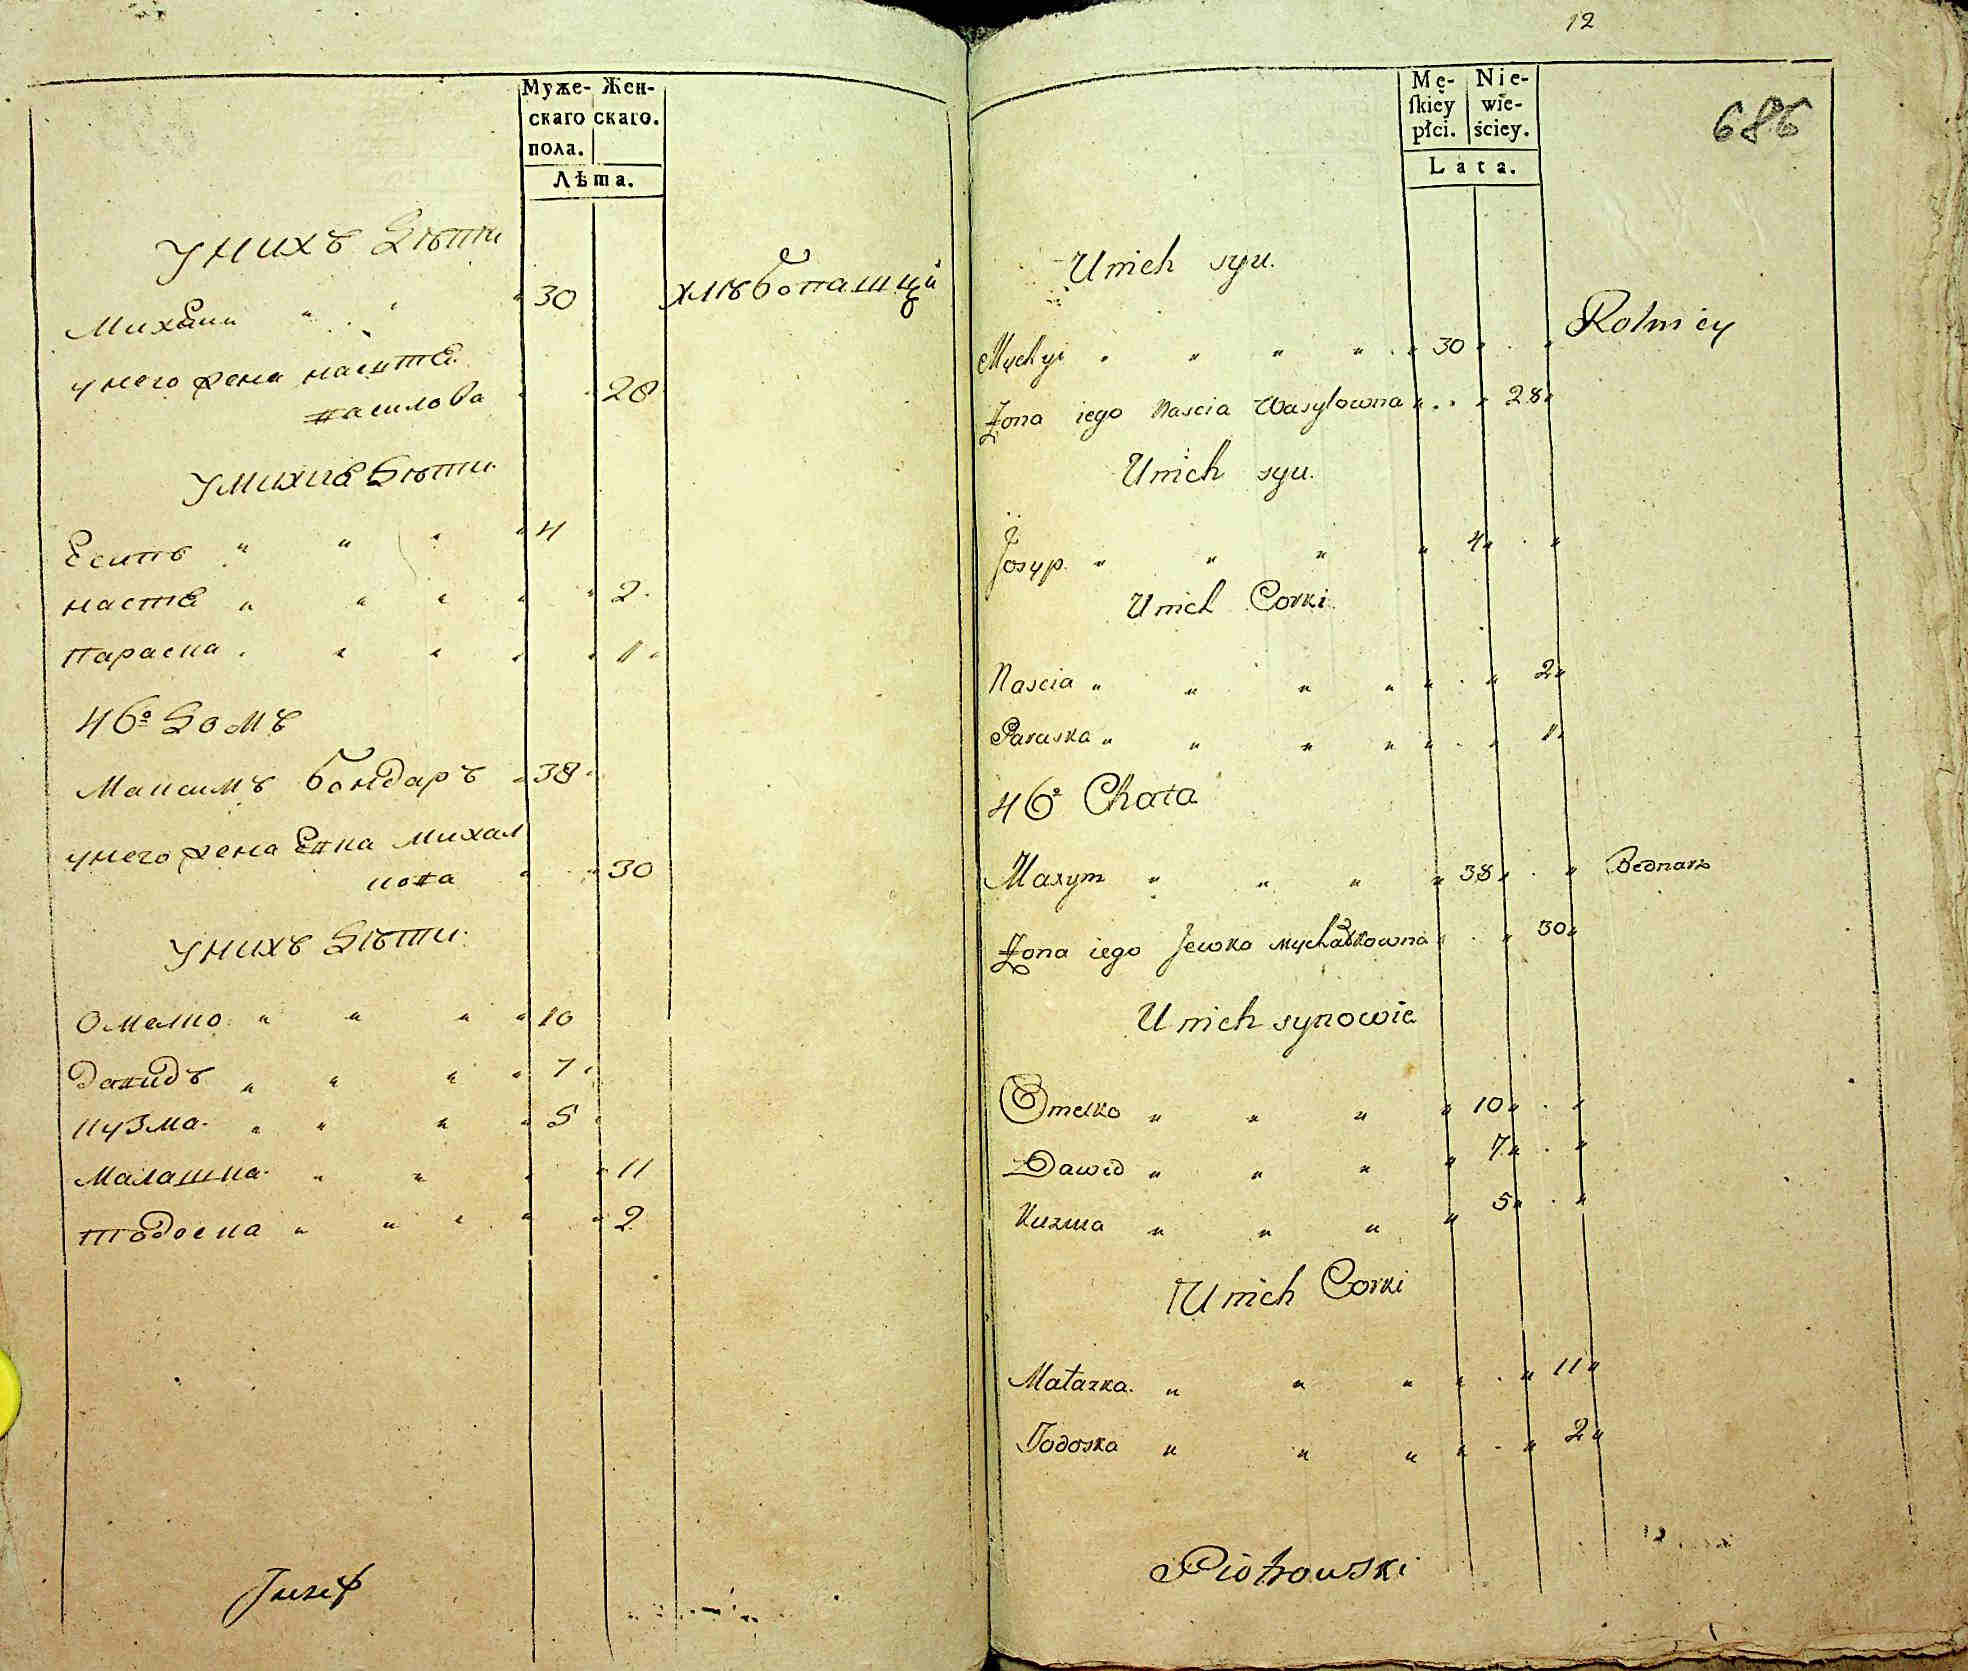 Муже- Жен-
скаго скаго.
пола.
Лѣта.
у нихъ дѣти
Михаил " " " 30 хлѣбопашци
у него жена настѣ
василова " " 28
у михъ дѣти
Есипъ " " " " 4
настѣ " " " " " 2
параска " " " " " 1
46º домъ
Максимъ бондаръ " 38
у него жена Евка михал
кова " " 30
у нихъ дѣти
Омелко " " " " 10
Давидъ " " " " 7
кузма " " " " 5
малашка " " " " 11
тодоска " " " " " 2
Jozef
12
686
Mę- Nie-
ſkiey wie-
płci. ściey.
Lata.
U nich syn.
Mychył " " " " " 30 " " Rolnicy
Żona iego Nascia Wasylowna " " 28 "
U nich syn.
Josyp " " " " 4 " "
U nich Corki
Nascia " " " " " " 2 "
Paraska " " " " " " 1 "
46º Chata
Maxym " " " " 38 " " Bednarz
Żona iego Jewka Mychałkowna " " 30 "
U nich synowie
Omelko " " " " 10 " "
Dawid " " " " 7 " "
Kuzma " " " " 5 " "
U nich Corki
Małazka " " " " " 11 "
Todoska " " " " " 2 "
Piotrowski